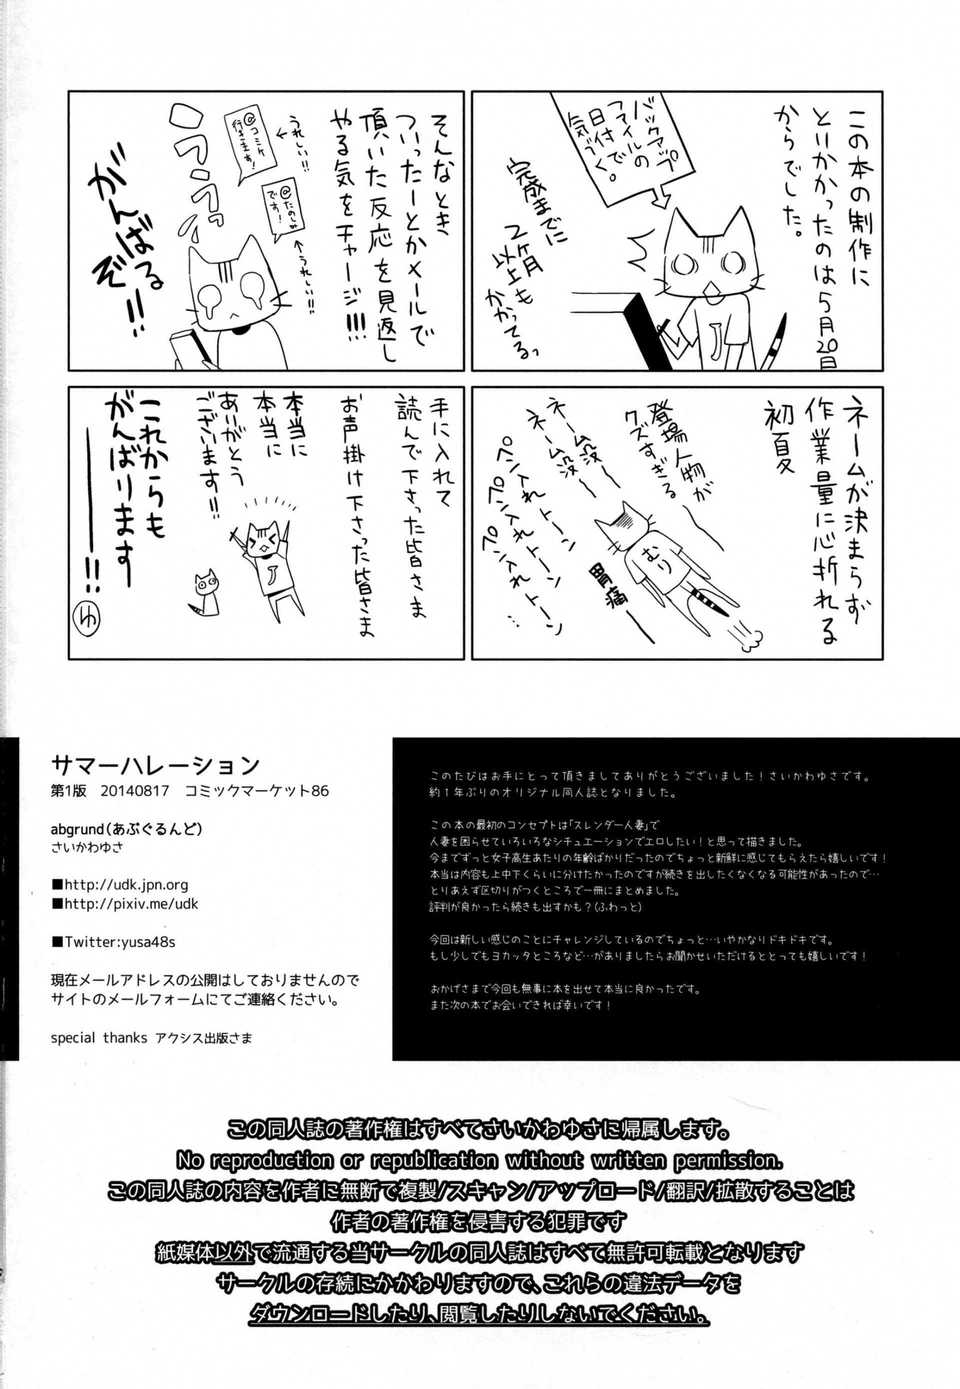 この本の制作に
とりかかったのは5月20日
からでした。
バックアップ
ファイルの
日付で
気づく。
完成までに
2ヶ月
以上も
かかってるっ
ネームが決まらず
作業量に心折れる
初夏
登場人物が
クズすぎる
ネーム没〜
ネーム没〜
ペン入れトーン
ペン入れトーン
ペン入れトーン
むり
胃痛
そんなとき
ついったーとかメールで
頂いた反応を見返し
やる気をチャージ!!!
うれしい!!
@コミケ
行きます!
@たのしみ
です!
うれしい!!
ウウウッ
がんばる
ぞ!!
J
手に入れて
読んで下さった皆さま
お声掛け下さった皆さま
本当に
本当に
ありがとう
ございます!!
これからも
がんばります
――!!
ゆ
J
サマーハレーション
第1版 20140817 コミックマーケット86
abgrund(あぶぐるんど)
さいかわゆさ
■http://udk.jpn.org
■http://pixiv.me/udk
■Twitter:yusa48s
現在メールアドレスの公開はしておりませんので
サイトのメールフォームにてご連絡ください。
special thanks アクシス出版さま
このたびはお手にとって頂きましてありがとうございました!さいかわゆさです。
約1年ぶりのオリジナル同人誌となりました。
この本の最初のコンセプトは「スレンダー人妻」で
人妻を困らせていろいろなシチュエーションでエロしたい!と思って描きました。
今までずっと女子高生あたりの年齢ばかりだったのでちょっと新鮮に感じてもらえたら嬉しいです!
本当は内容も上中下くらいに分けたかったのですが続きを出したくなくなる可能性があったので…
とりあえず区切りがつくところで一冊にまとめました。
評判が良かったら続きも出すかも?(ふわっと)
今回は新しい感じのことにチャレンジしているのでちょっと…いやかなりドキドキです。
もし少しでもヨカッタところなど…がありましたらお聞かせいただけるととっても嬉しいです!
おかげさまで今回も無事に本を出せて本当に良かったです。
また次の本でお会いできれば幸いです!
この同人誌の著作権はすべてさいかわゆさに帰属します。
No reproduction or republication without written permission.
この同人誌の内容を作者に無断で複製/スキャン/アップロード/翻訳/拡散することは
作者の著作権を侵害する犯罪です
紙媒体以外で流通する当サークルの同人誌はすべて無許可転載となります
サークルの存続にかかわりますので、これらの違法データを
ダウンロードしたり、閲覧したりしないでください。